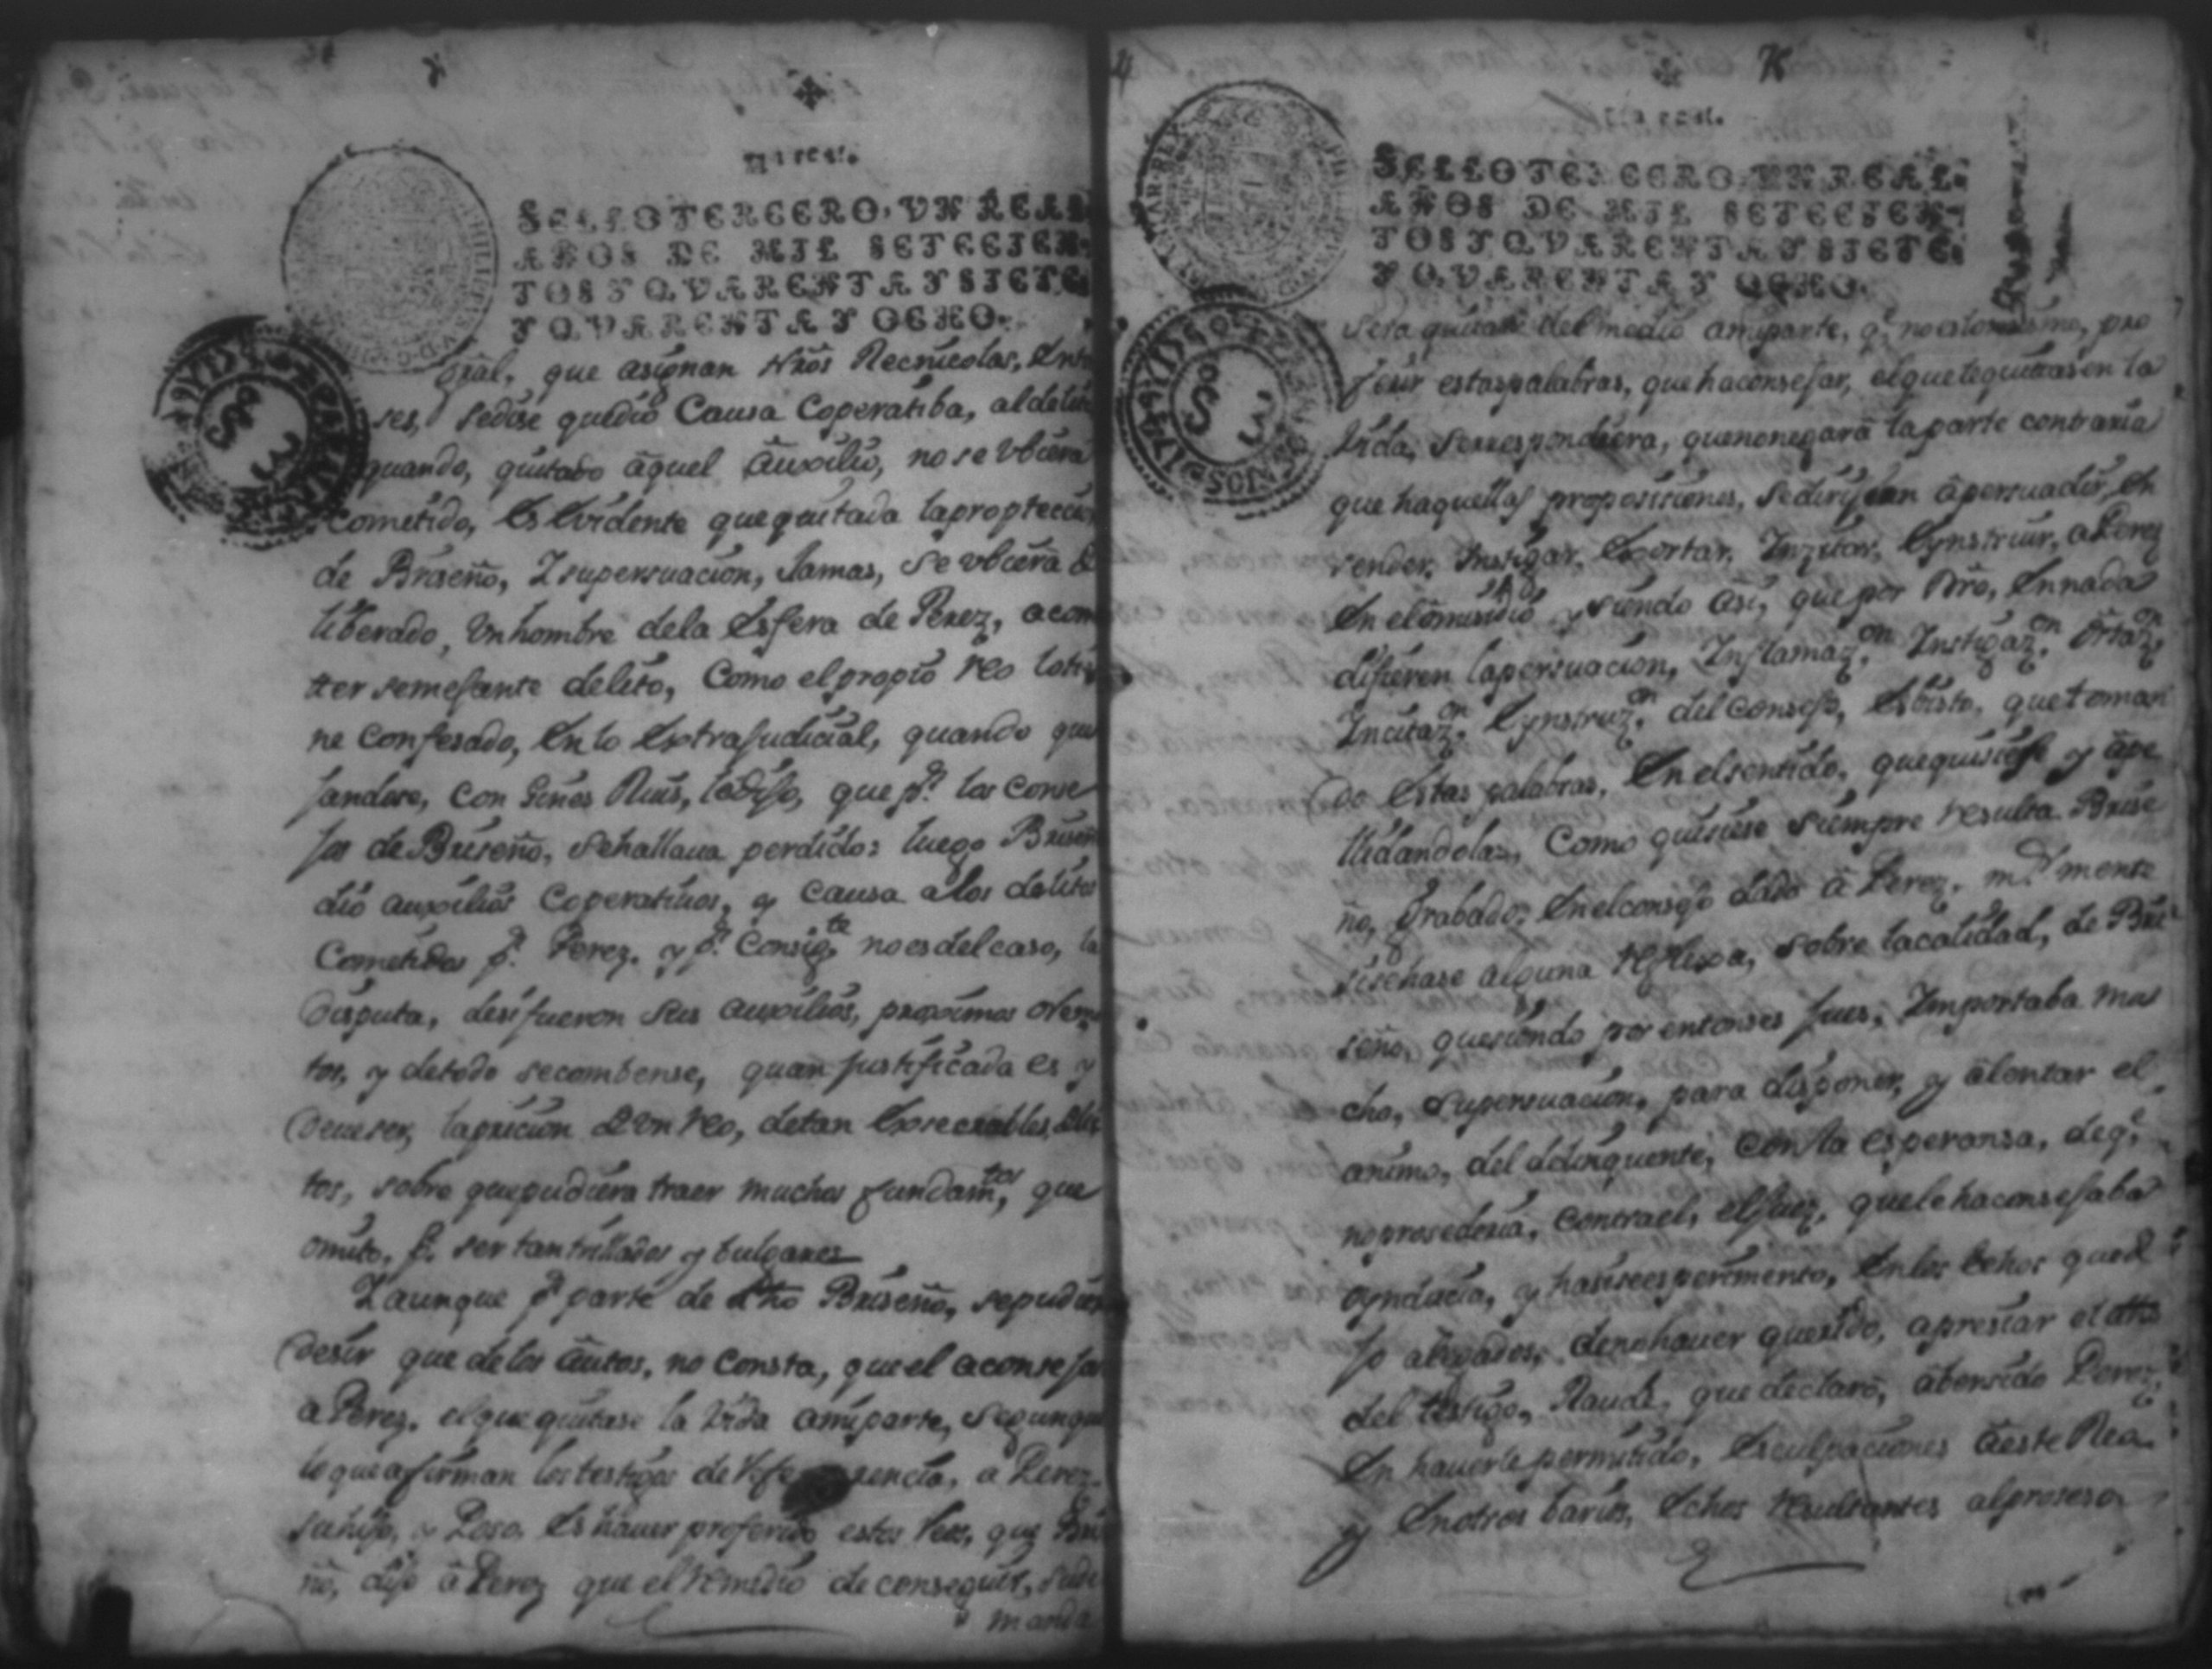 Un real.
SELLO TERCERO, VN REAL,
AÑOS DE MIL SETECIEN-
TOS Y QVARENTA Y SIETE
Y QVARENTA Y OCHO.
que asignan Nros Regnicolas,
ses, sedise quedio Causa Coperatiba, aldelito
quando, quitado âquel âuxilio, no se vbiera
Cometido, Es Evidente quequitada la
de Briseño, Y supersuacion, Jamas, Se vbiera de
liberado, Vn hombre dela Esfera de Perez, acom
tter semejante delito, Como el propio reo lo
ne Confesado, En lo Extrajudicial, quando que
jandose, con Gines Ruis, le dijo, que pr. los Conse
jos de Briseño, Sehallaua perdido: luego Briseñ
dio auxilios Coperatiuos, y Causa alos delitos
Cometidos pr. Perez, y pr. Consigte no es del caso, la
Disputa, desi fueron Sus auxilios, proximos o remo
tos, y detodo secombense, quan justificada es y
Deueser, lapricion de Vn reo, detan Exsecrables deli
tos, sobre quepudiera traer muchos fundamtos, que
omito, pr. ser tan trillados y bulgares
Y aunque pr parte de dho Briseño, sepudiera
Desir que delos âutos, no Consta, que el aconsejas
a Perez, elque quitase la Vida amiparte, Segun que
loque afirman los testigos de refe rencia, a Perez,
suhijo, y Poso, Es hauer proferido estas Vees, que Bri
ño, dijo â Perez que el remedio de conseguir, Sude
manda
76
Un real.
SELLO TERCERO, VN REAL,
AÑOS DE MIL SETECIEN-
TOS Y QVARENTA Y SIETE
Y QVARENTA Y OCHO.
Sera quitar del medio amiparte, qe. noes lo mismo, pro
ferir estas palabras, que haconsejar, elque lequitasen la
Vida, Serrespondiera, quenonegarâ la parte contraria
que haquellas proposiciones, Sedirijian âpersuadir, En
sender, Instigar, Exortar, Inzitar, Eynstruir, a Perez
En el omisidio, y siendo asi, que por Dro, En nada
difieren lapersuacion, Inflamazon, Instigazon, Ortazon,
Incitazon, Eynstruzon, del Consejo, Esbisto, que toman
do Estas palabras, En el sentido, quequisiese y ape
llidandolas, Como quisiese Siempre resulta Brise
ño, Grabado; En el consejo dado â Perez, mr. mente
sisehase alguna reflexa, sobre lacalidad, de Bri
seño, quesiendo por entonses Jues, Importaba mu
cho, supersuacion, para disponer, y âlentar el
animo, del delinquente, Con la esperansa, deqe.
noprosederia, Contrael, elJuez, que le haconsejaba
eynducia, y hasi se esperimento, En los hechos quede
jo alegados, denohauer querido, apresiar el dho
del testigo, que declarô,
En hauerle permitido, âeste Reo
y En otros barios, Echos resultantes alproseso